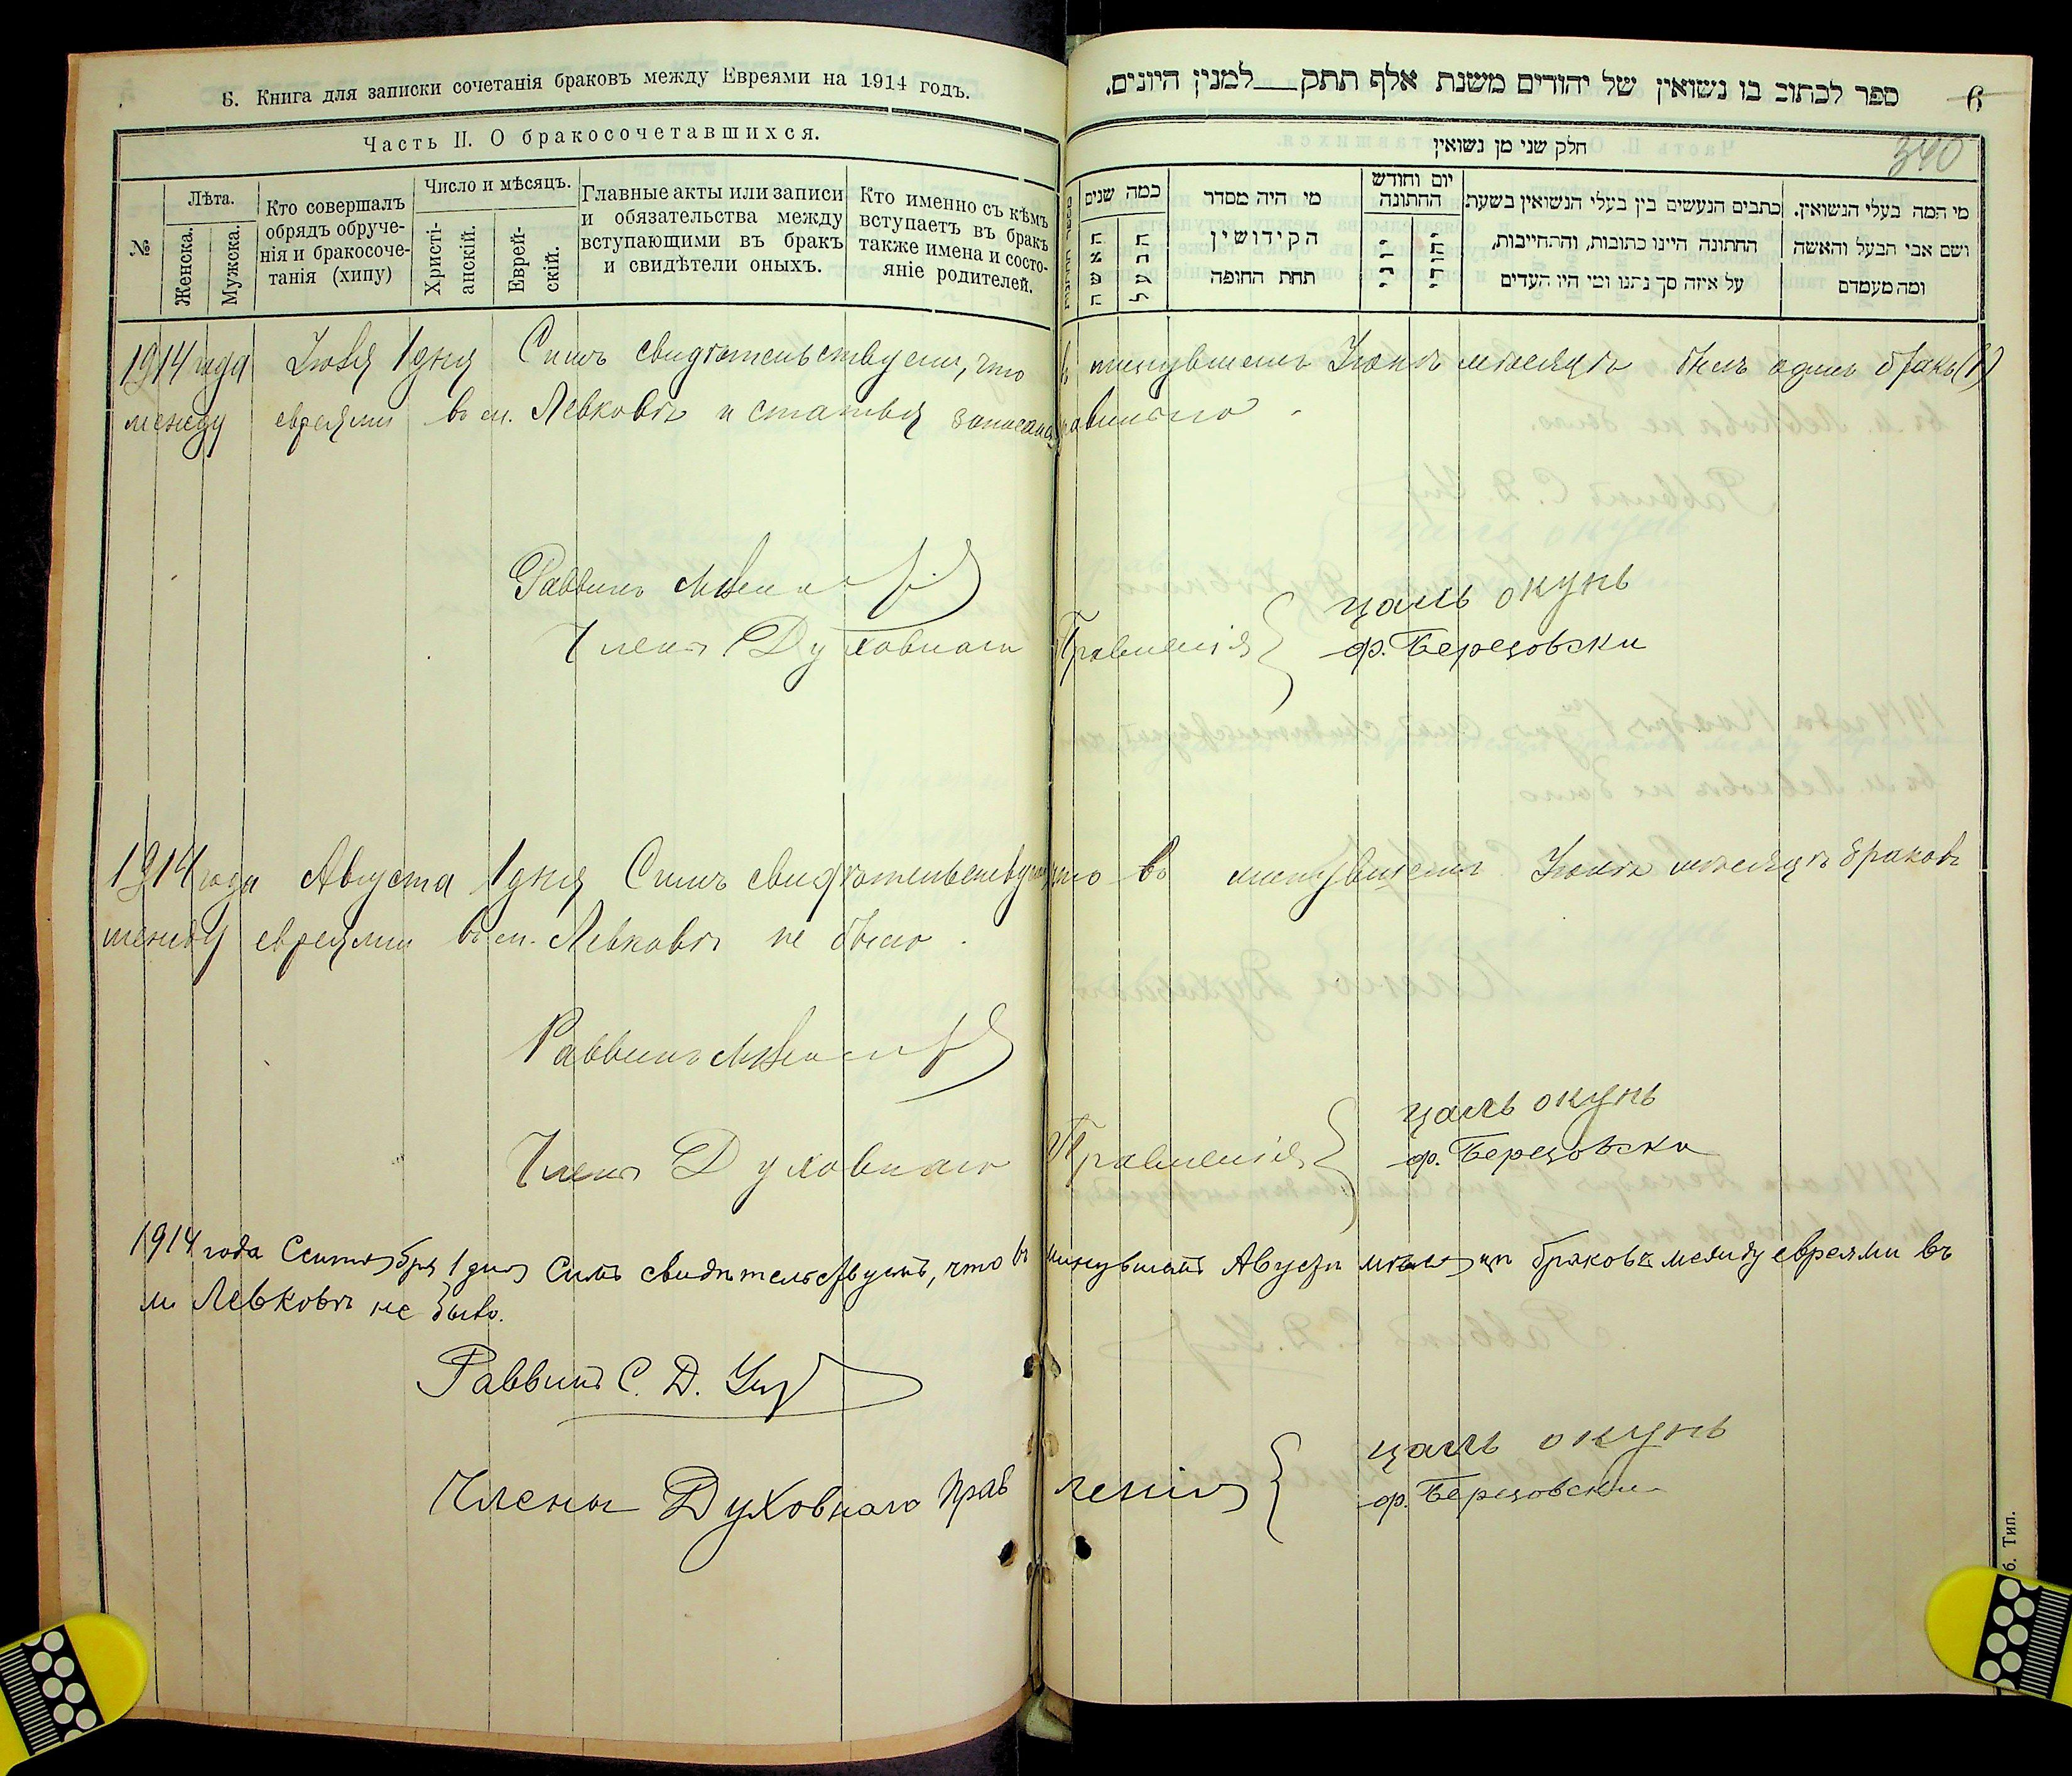 Б. Книга для записки сочетанія браковъ между Евреями на 1914 годъ.
Часть II. О бракосочетавшихся.
№
Лѣта.
Женска.
Мужска.
Кто совершалъ
обрядъ обруче-
нія и бракосоче-
танія (хипу)
Число и мѣсяцъ.
Христі-
анскій.
Еврей-
скій.
Главные акты или записи
и обязательства между
вступающими въ бракъ
и свидѣтели оныхъ.
Кто именно съ кѣмъ
вступаетъ въ бракъ
также имена и состо-
яніе родителей.
ספר לכתוב בו נשואין של יהודים משנת אלף תתק למנין היונים.
6
340
חלק שני מן נשואין
כמה שנים
האשה
הבעל
מי היה מסדר
הקידושין
תחת החופה
יום וחודש
החתונה
יוני
יהודי
כתבים הנעשים בין בעלי הנשואין בשעת
החתונה היינו כתובות, והתחייבות,
על איזה סך נתנו ומי היו העדים
מי המה בעלי הנשואין.
ושם אבי הבעל והאשה
ומה מעמדם
1914 года Іюля 1 дня Симъ свидѣтельствуемъ, что въ минувшемъ Іюнѣ мѣсяцѣ былъ одинъ бракъ (1)
между евреями въ м. Левковѣ и статья записана правильно
Раввинъ
Члены Духовнаго Правленія
цаль окунь
ф. Березовски
1914 года Августа 1 дня Симъ свидѣтельствуемъ что въ минувшемъ Іюлѣ мѣсяцѣ браковъ
между евреями въ м. Левковѣ не было.
Раввинъ
Члены Духовнаго Правленія
цаль окунь
ф. Березовски
1914 года Сентября 1 дня Симъ свидѣтельствуемъ, что въ минувшемъ Августѣ мѣсяцѣ браковъ между евреями въ
м. Левковѣ не было.
Раввинъ С. Д.
Члены Духовнаго Правленія
цаль окунь
ф. Березовски
б. Тип.